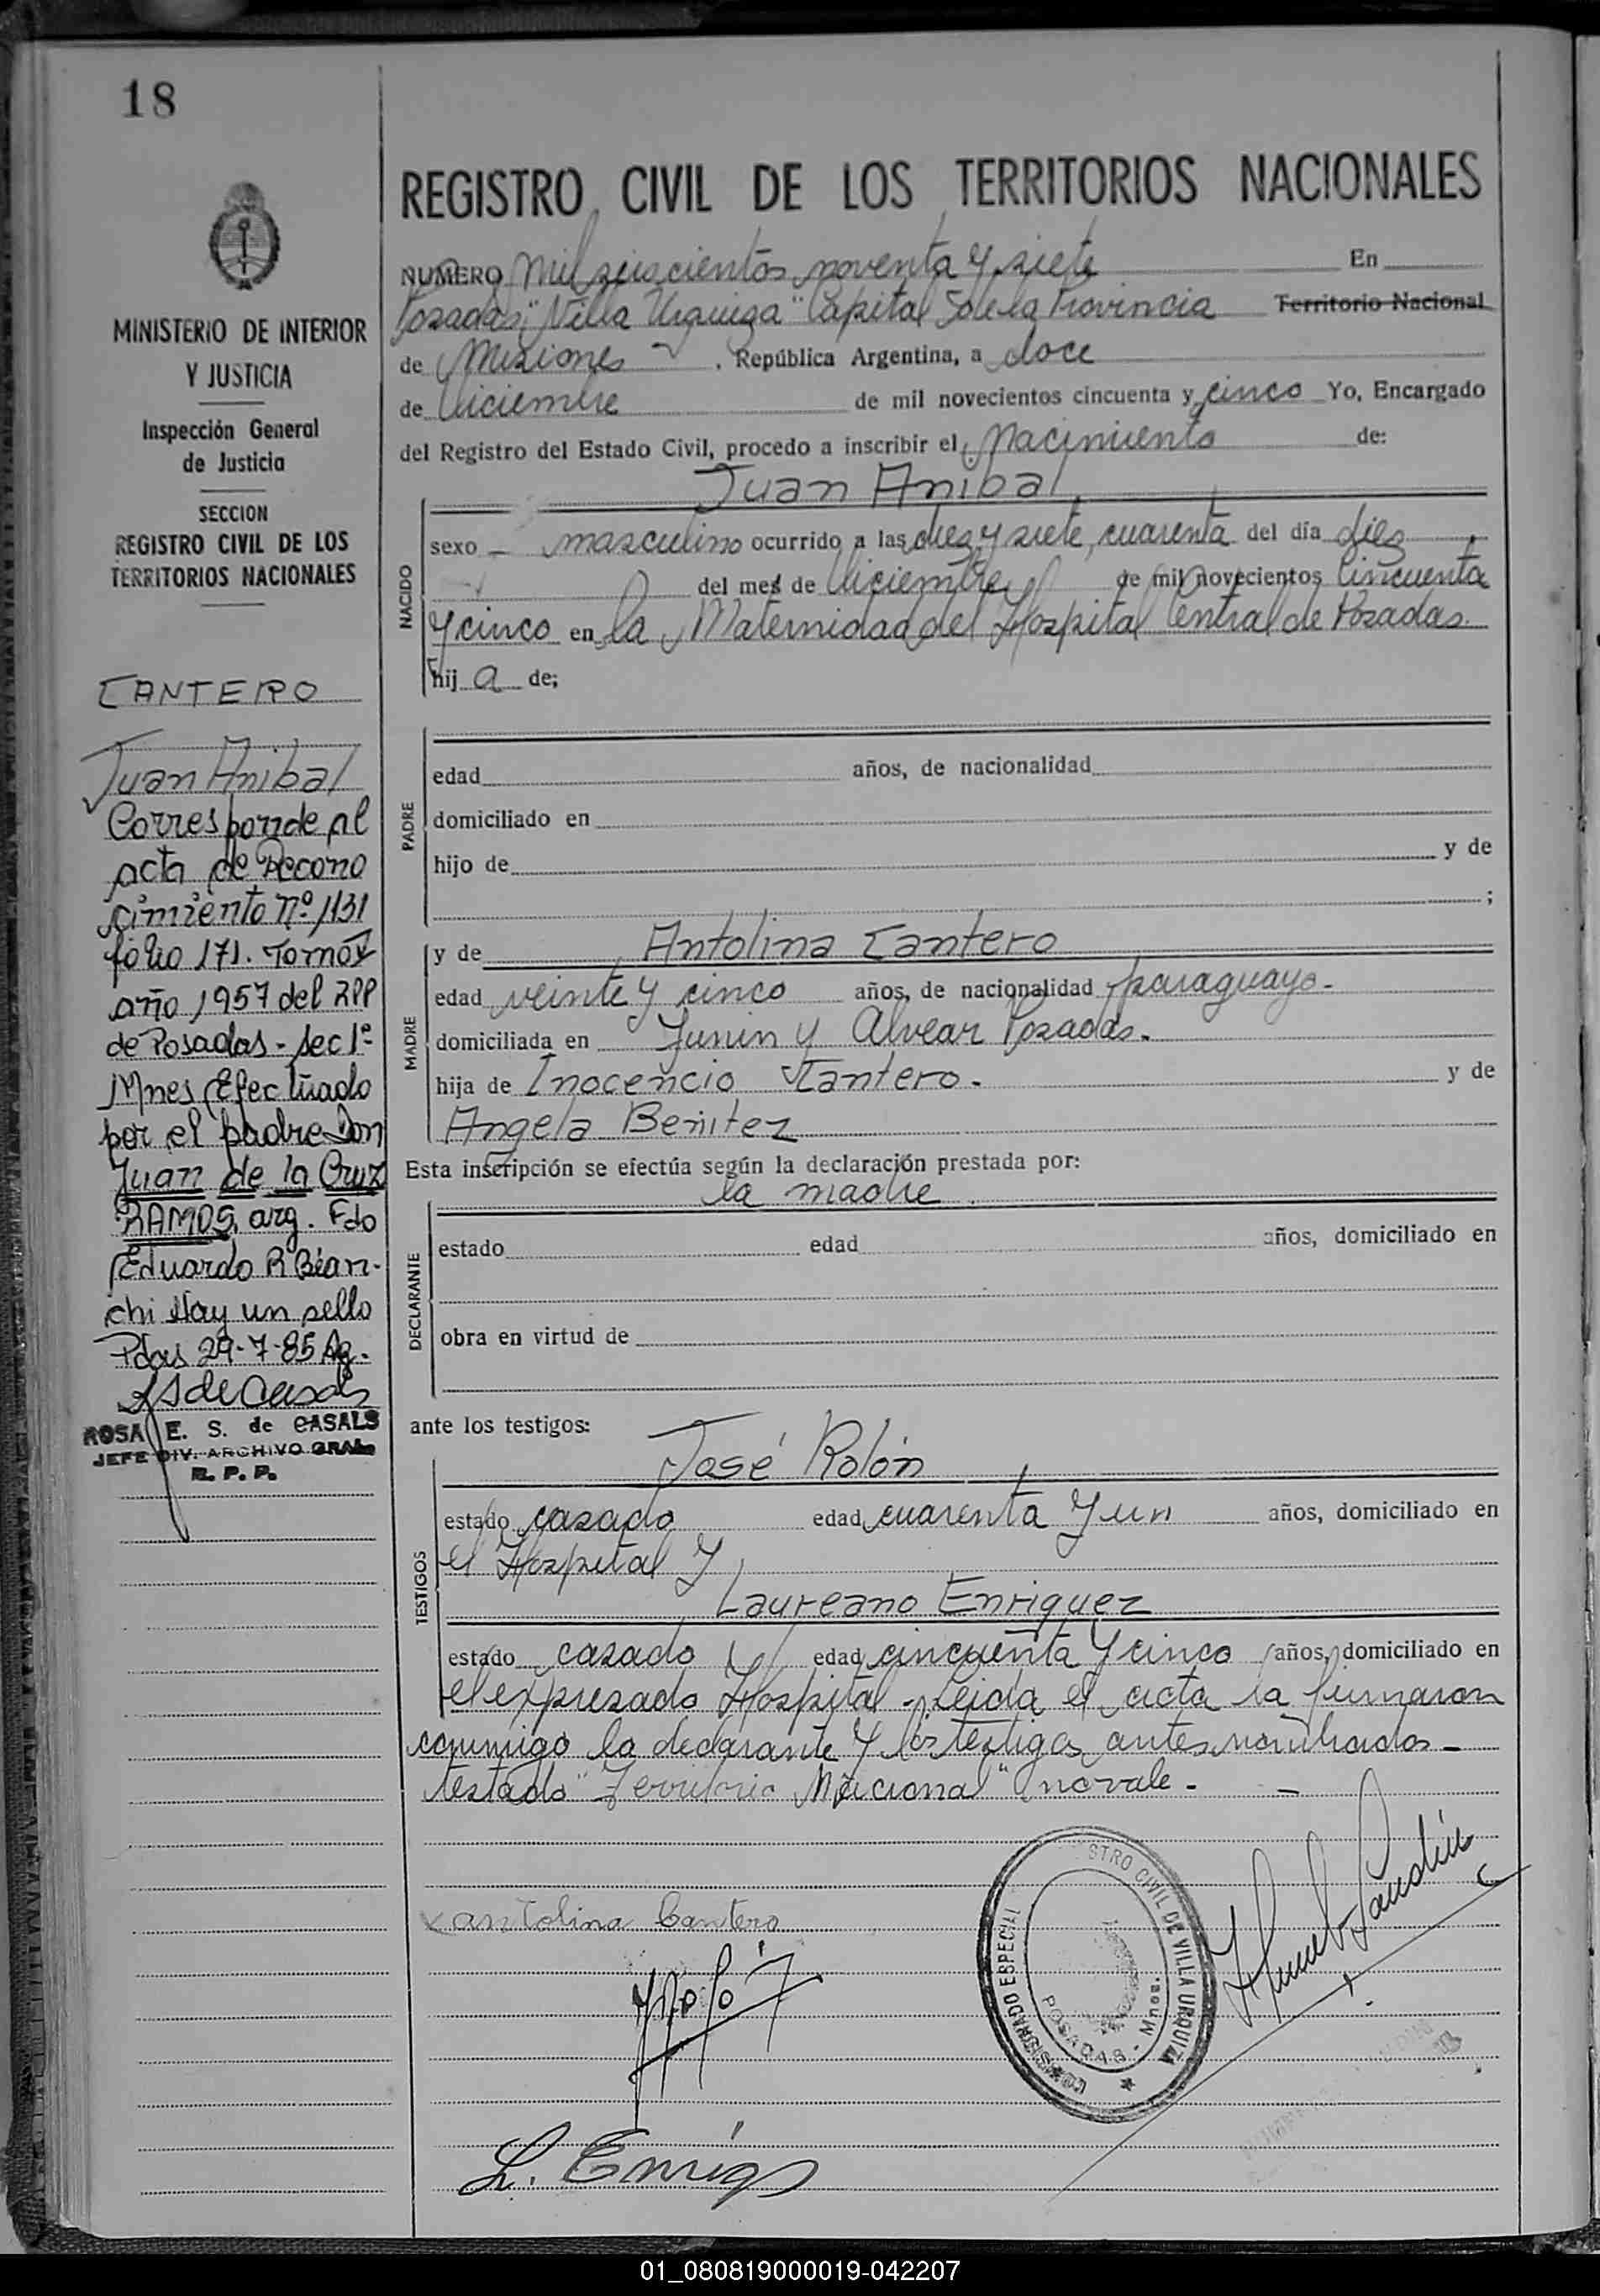 18
MINISTERIO DE INTERIOR
Y JUSTICIA
Inspección General
de Justicia
SECCION
REGISTRO CIVIL DE LOS
TERRITORIOS NACIONALES
CANTERO
Juan Anibal
Corresponde al
acta de Recono
cimiento Nº 1131
folio 171. Tomo
año 1957 del RPP
de Posadas - sec 1ª
Mnes Efectuado
por el padre Don
Juan de la Cruz
RAMOS, arg. Fdo
Eduardo R Bian-
chi Hay un sello
Pdas 29-7-85
ROSA E. S. de CASALS
JEFE DIV. ARCHIVO GRAL.
R. P. P.
REGISTRO CIVIL DE LOS TERRITORIOS NACIONALES
NUMERO Mil seiscientos noventa y siete En
Posadas, "Villa Urquiza" Capital de la Provincia Territorio Nacional
de Misiones , República Argentina, a doce
de Diciembre de mil novecientos cincuenta y cinco Yo, Encargado
del Registro del Estado Civil, procedo a inscribir el Nacimiento de:
Juan Anibal
NACIDO
sexo - masculino ocurrido a las diez y siete, cuarenta del día diez
del mes de Diciembre de mil novecientos Cincuenta
y cinco en la Maternidad del Hospital Central de Posadas.
hij a de;
PADRE
edad años, de nacionalidad
domiciliado en
hijo de y de
;
MADRE
y de Antolina Cantero
edad veinte y cinco años, de nacionalidad paraguaya -
domiciliada en Junin y Alvear Posadas. -
hija de Inocencio Cantero - y de
Angela Benitez
Esta inscripción se efectúa según la declaración prestada por:
la madre
DECLARANTE
estado edad años, domiciliado en
obra en virtud de
ante los testigos:
José Rolón
TESTIGOS
estado casado edad cuarenta y un años, domiciliado en
el Hospital y
Laureano Enriquez
estado casado y edad cincuenta y cinco años, domiciliado en
el expresado Hospital - Leida el acta la firmaron
conmigo la declarante y los testigos antes nombrados -
testado "Territorio Nacional" no vale - -
x antolina Cantero
REGISTRO CIVIL DE VILLA URQUIZA
ESPECIAL
POSADAS - Mnes.
01_080819000019-042207